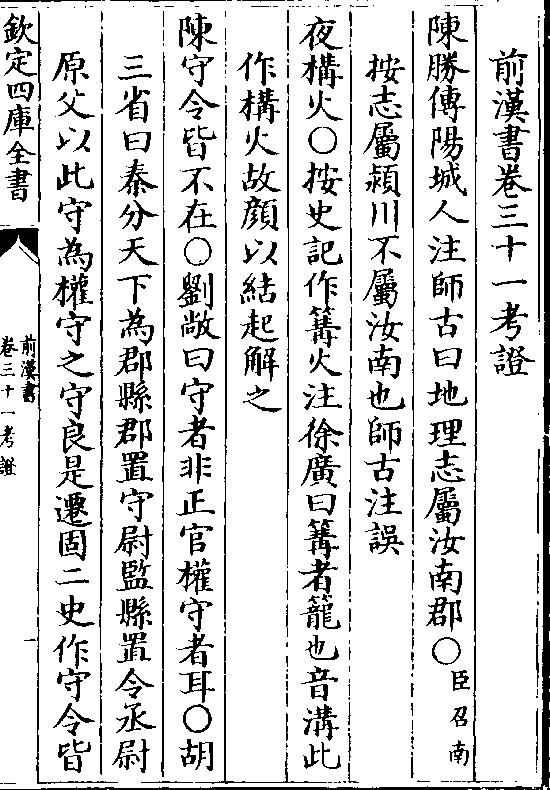 前漢書卷三十一考證
陳勝傳陽城人注師古曰地理志屬汝南郡○臣召南
按志屬潁川不屬汝南也師古注誤
夜構火○按史記作篝火注徐廣曰篝者籠也音溝此
作構火故顔以結起解之
陳守令皆不在○劉敞曰守者非正官權守者耳○胡
三省曰秦分天下為郡縣郡置守尉監縣置令丞尉
原父以此守為權守之守良是遷固二史作守令皆
欽定四庫全書
前漢書
卷三十一考證